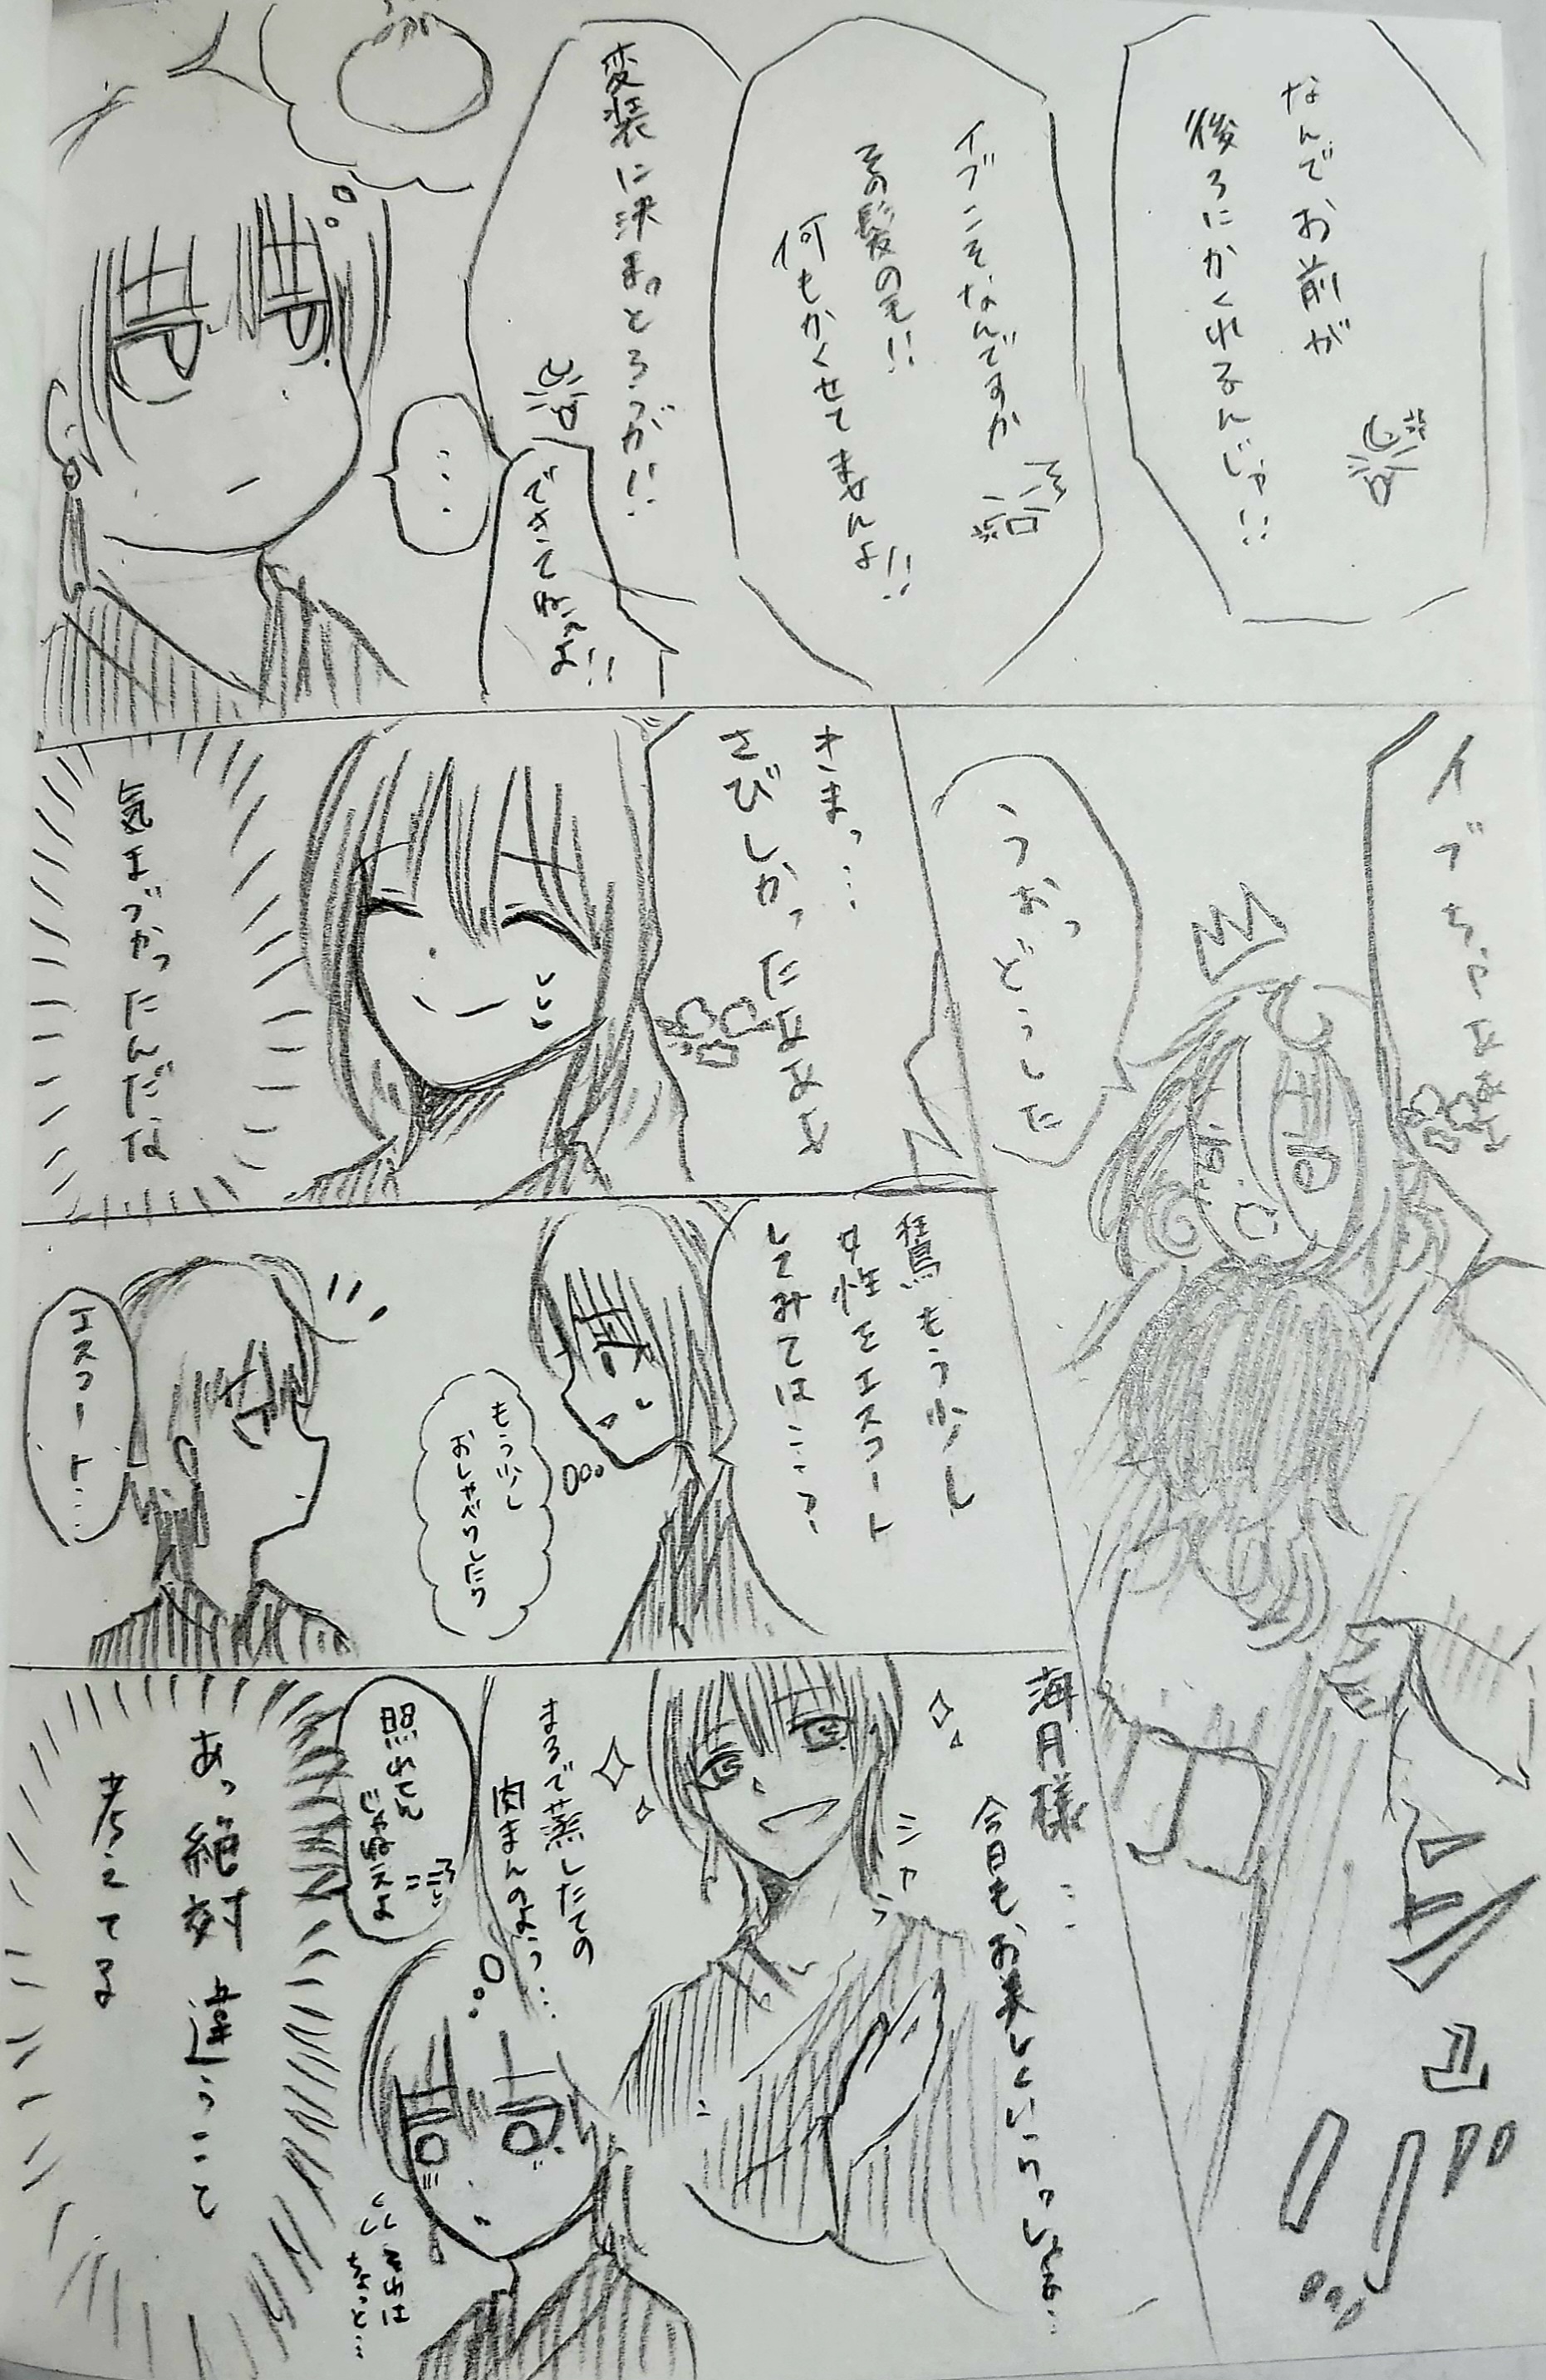 なんでお前が
後ろにかくれるんじゃ!!
イブこそなんですか
その髪の毛!!
何もかくせてませんよ!!
変装に決まっとろうが!!
できてねえよ!!
…
イブちゃぁぁぁ
うおっ
どうした
さまっ…
さびしかったぁぁぁぁ
気まづかったんだな
もう少し
女性をエスコート
してみては…?
もう少し
おしゃべりしたり
エスコート…
海月様…
今日もお美しくいらっしゃる…
ニカッ
まるで蒸したての
肉まんのよう…
照れてん
じゃねえよ
それは
ちょっと…
あっ絶対違うこと
考えてる